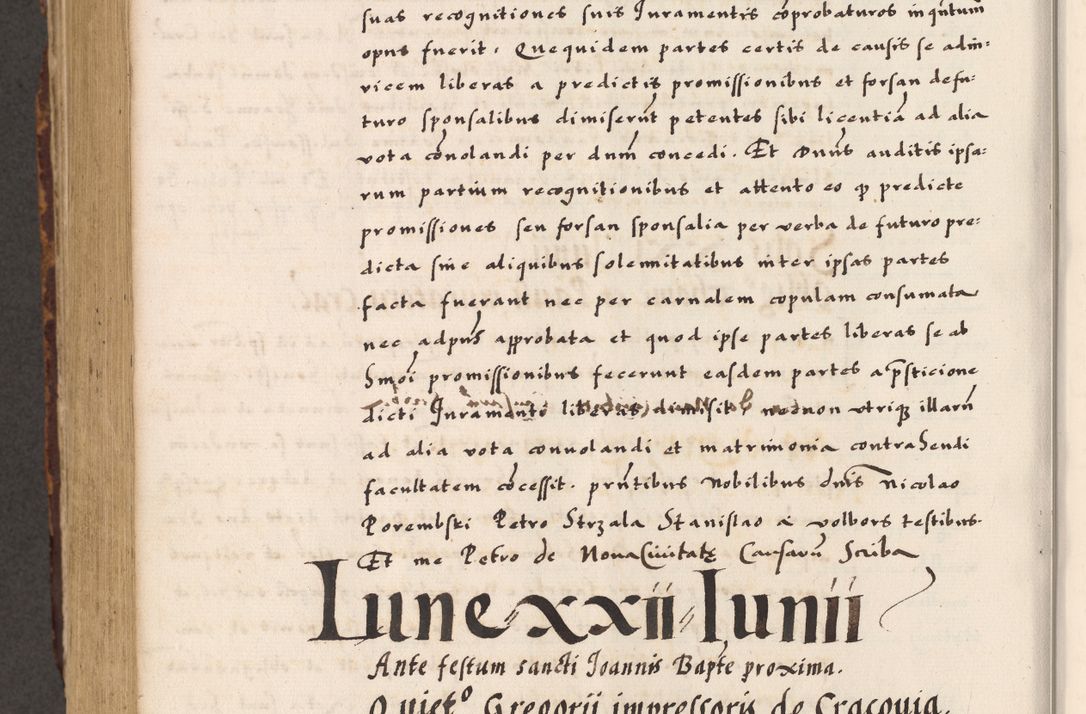 suas recognitiones suis Iuramentis cōprobaturos in qūtum
opus fuerit. Quequidem partes certis de causis se adin:
vicem liberas a predictis promissionibus et forsan defu:
turo sponsalibus dimiserūt petentes sibi licentiā ad alia
vota cōvolandi per dnm̄ concedi. Et Dnūs auditis ipsa:
rum partium recognitionibus et attento eo ꝙ predicte
promissiones seu forsan sponsalia per verba de futuro pre:
dicta sine aliquibus solennitatibus inter ipsas partes
facta fuerant nec per carnalem copulam consumata
nec adpn̄s approbata et quod ipse partes liberas se ab
hmōi promissionibus fecerunt easdem partes a p̄sticione
dicti Iuramenti liberas dimisit necnon utriqꝫ illarū
ad alia vota convolandi et matrimonia contrahendi
facultatem cōcessit. prn̄tibus Nobilibus dnis̄ Nicolao
Porembski Petro Strzala Stanislao a volbors testibus.
Et me Petro de Nova Civitatę Causarū Scriba
Lune xxii Iunii
Ante festum sancti Joannis Bapt̄e proxima.
Quiet⁰ Gregorii impressoris de Cracovia.